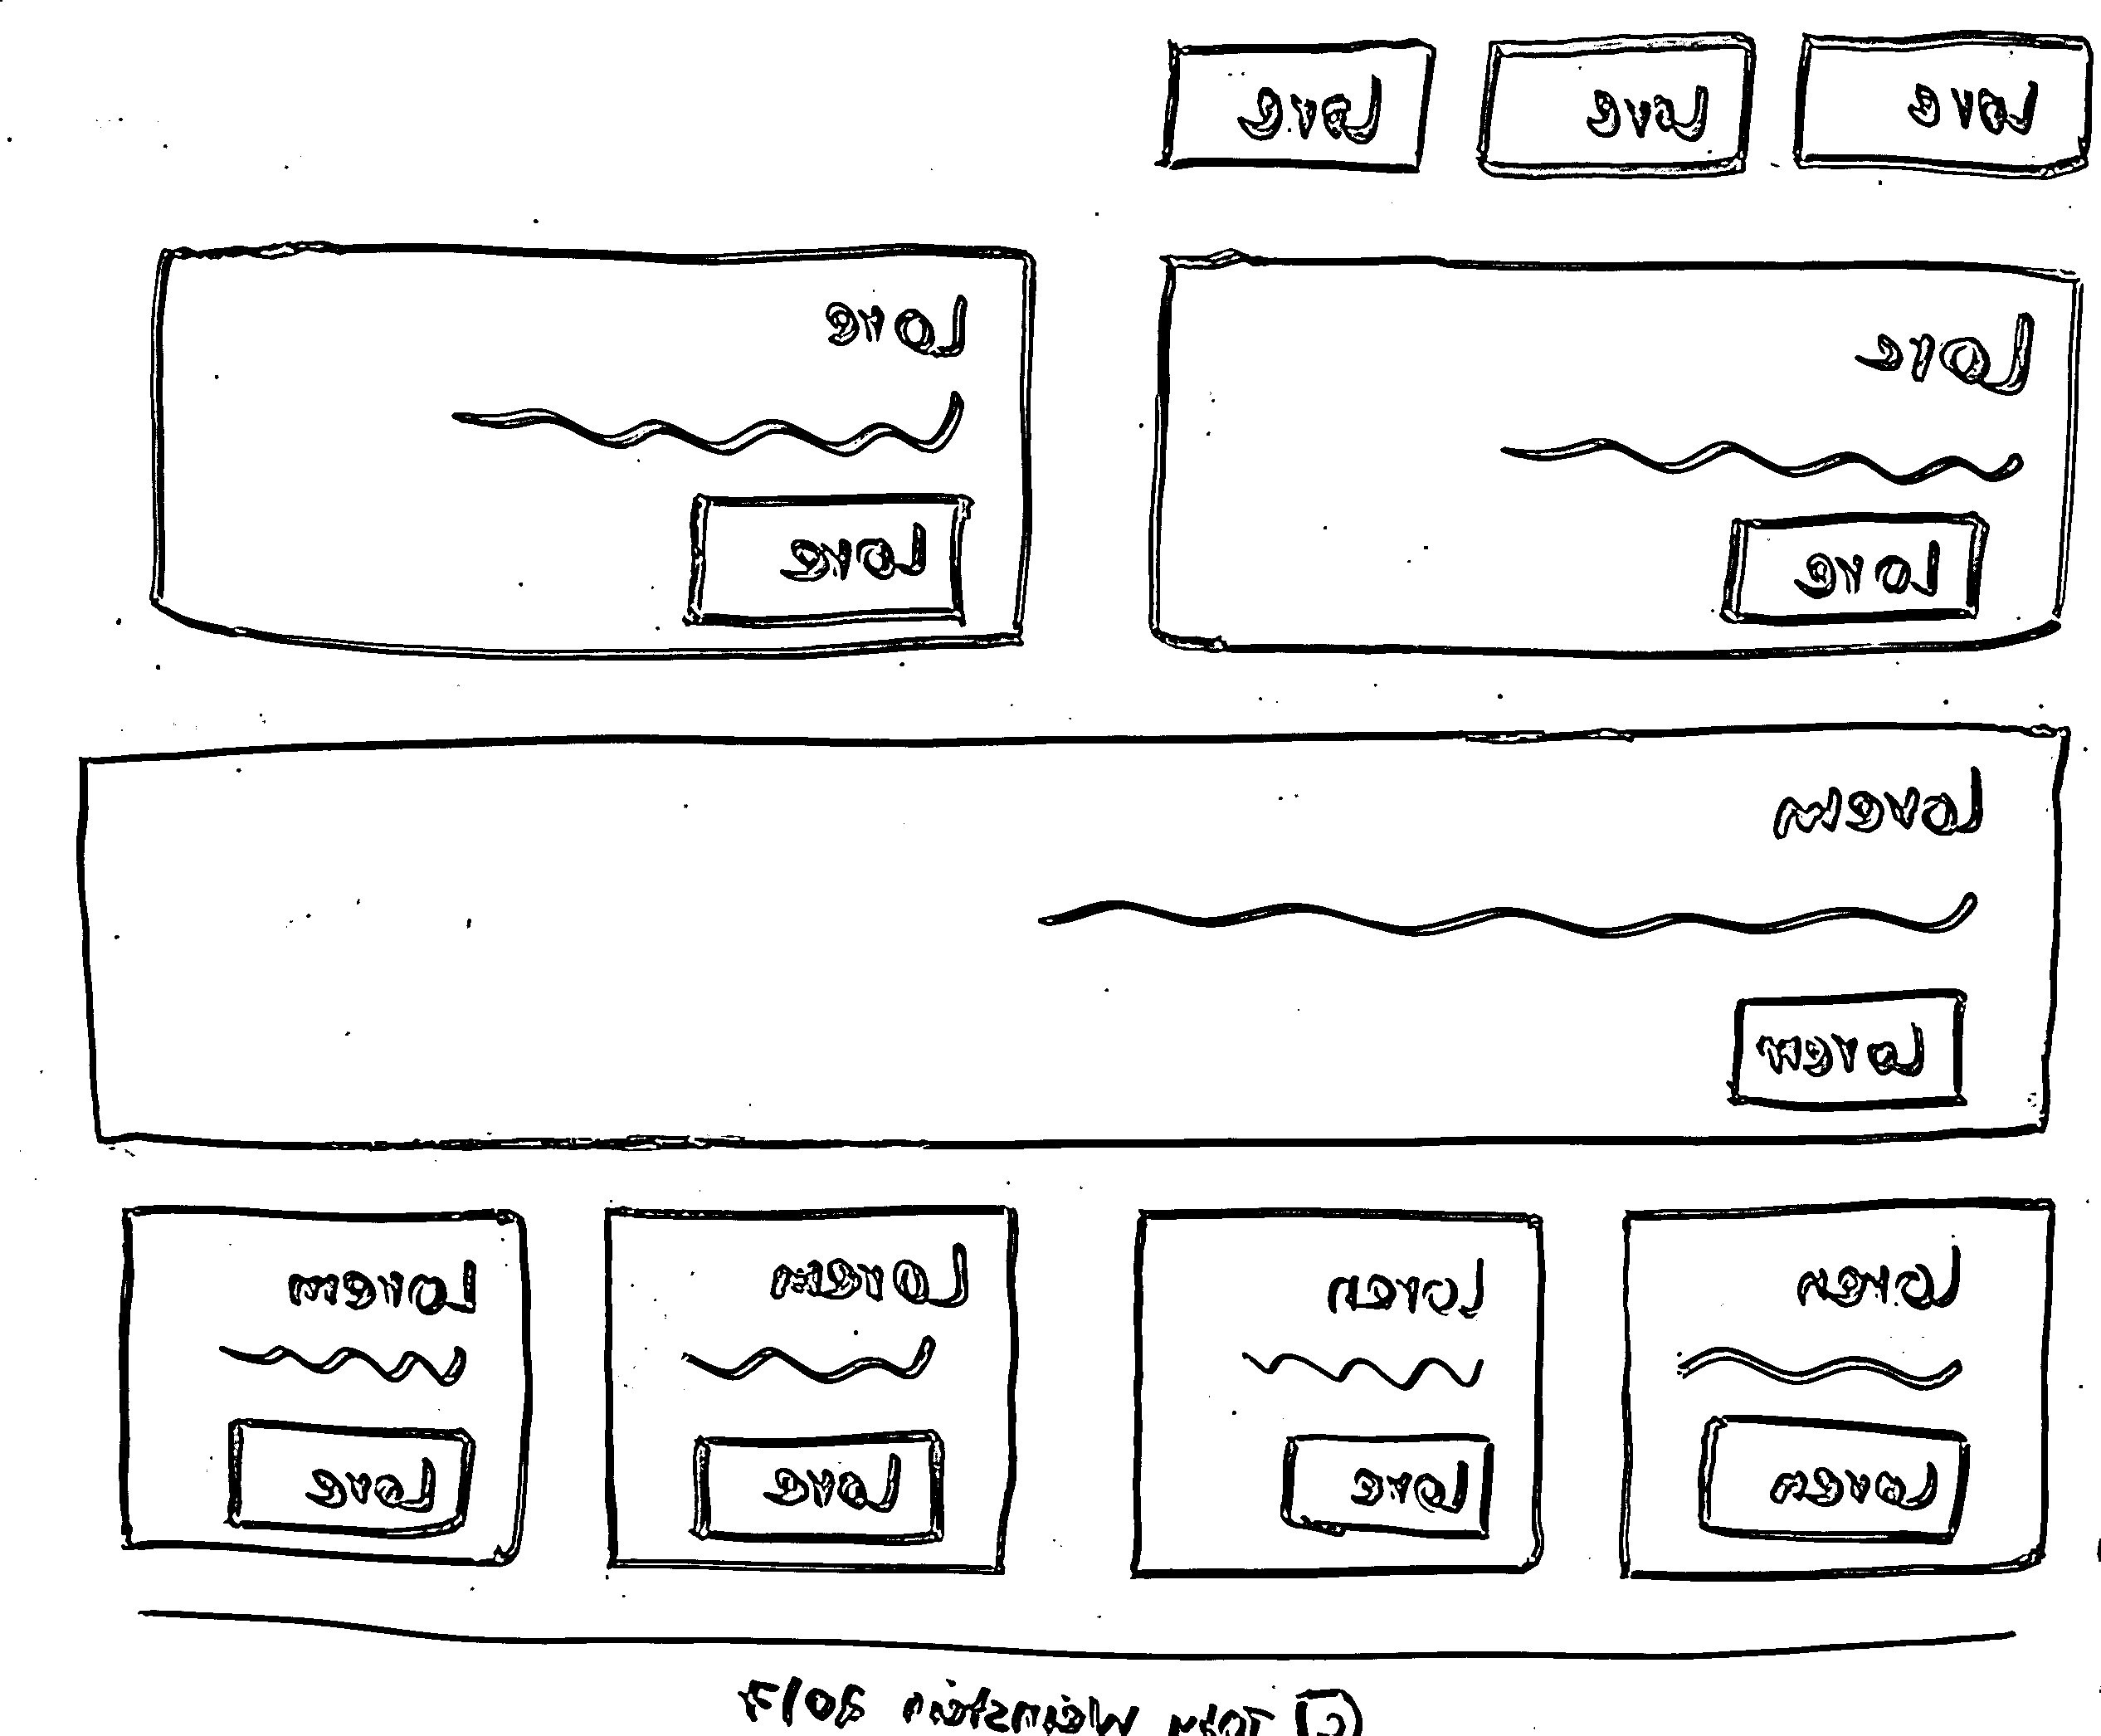 Lore Lore Lore
Lore Lore
Lore Lore
Lorem
Lorem
Loren Loren Lorem Lorem
Loren Lore Lore Lore
© Weinstein 2017